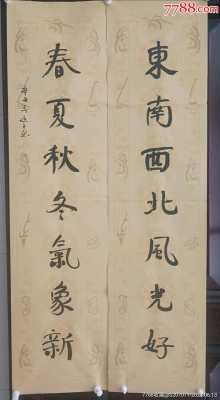 7788.com
東南西北風光好
春夏秋冬氣象新